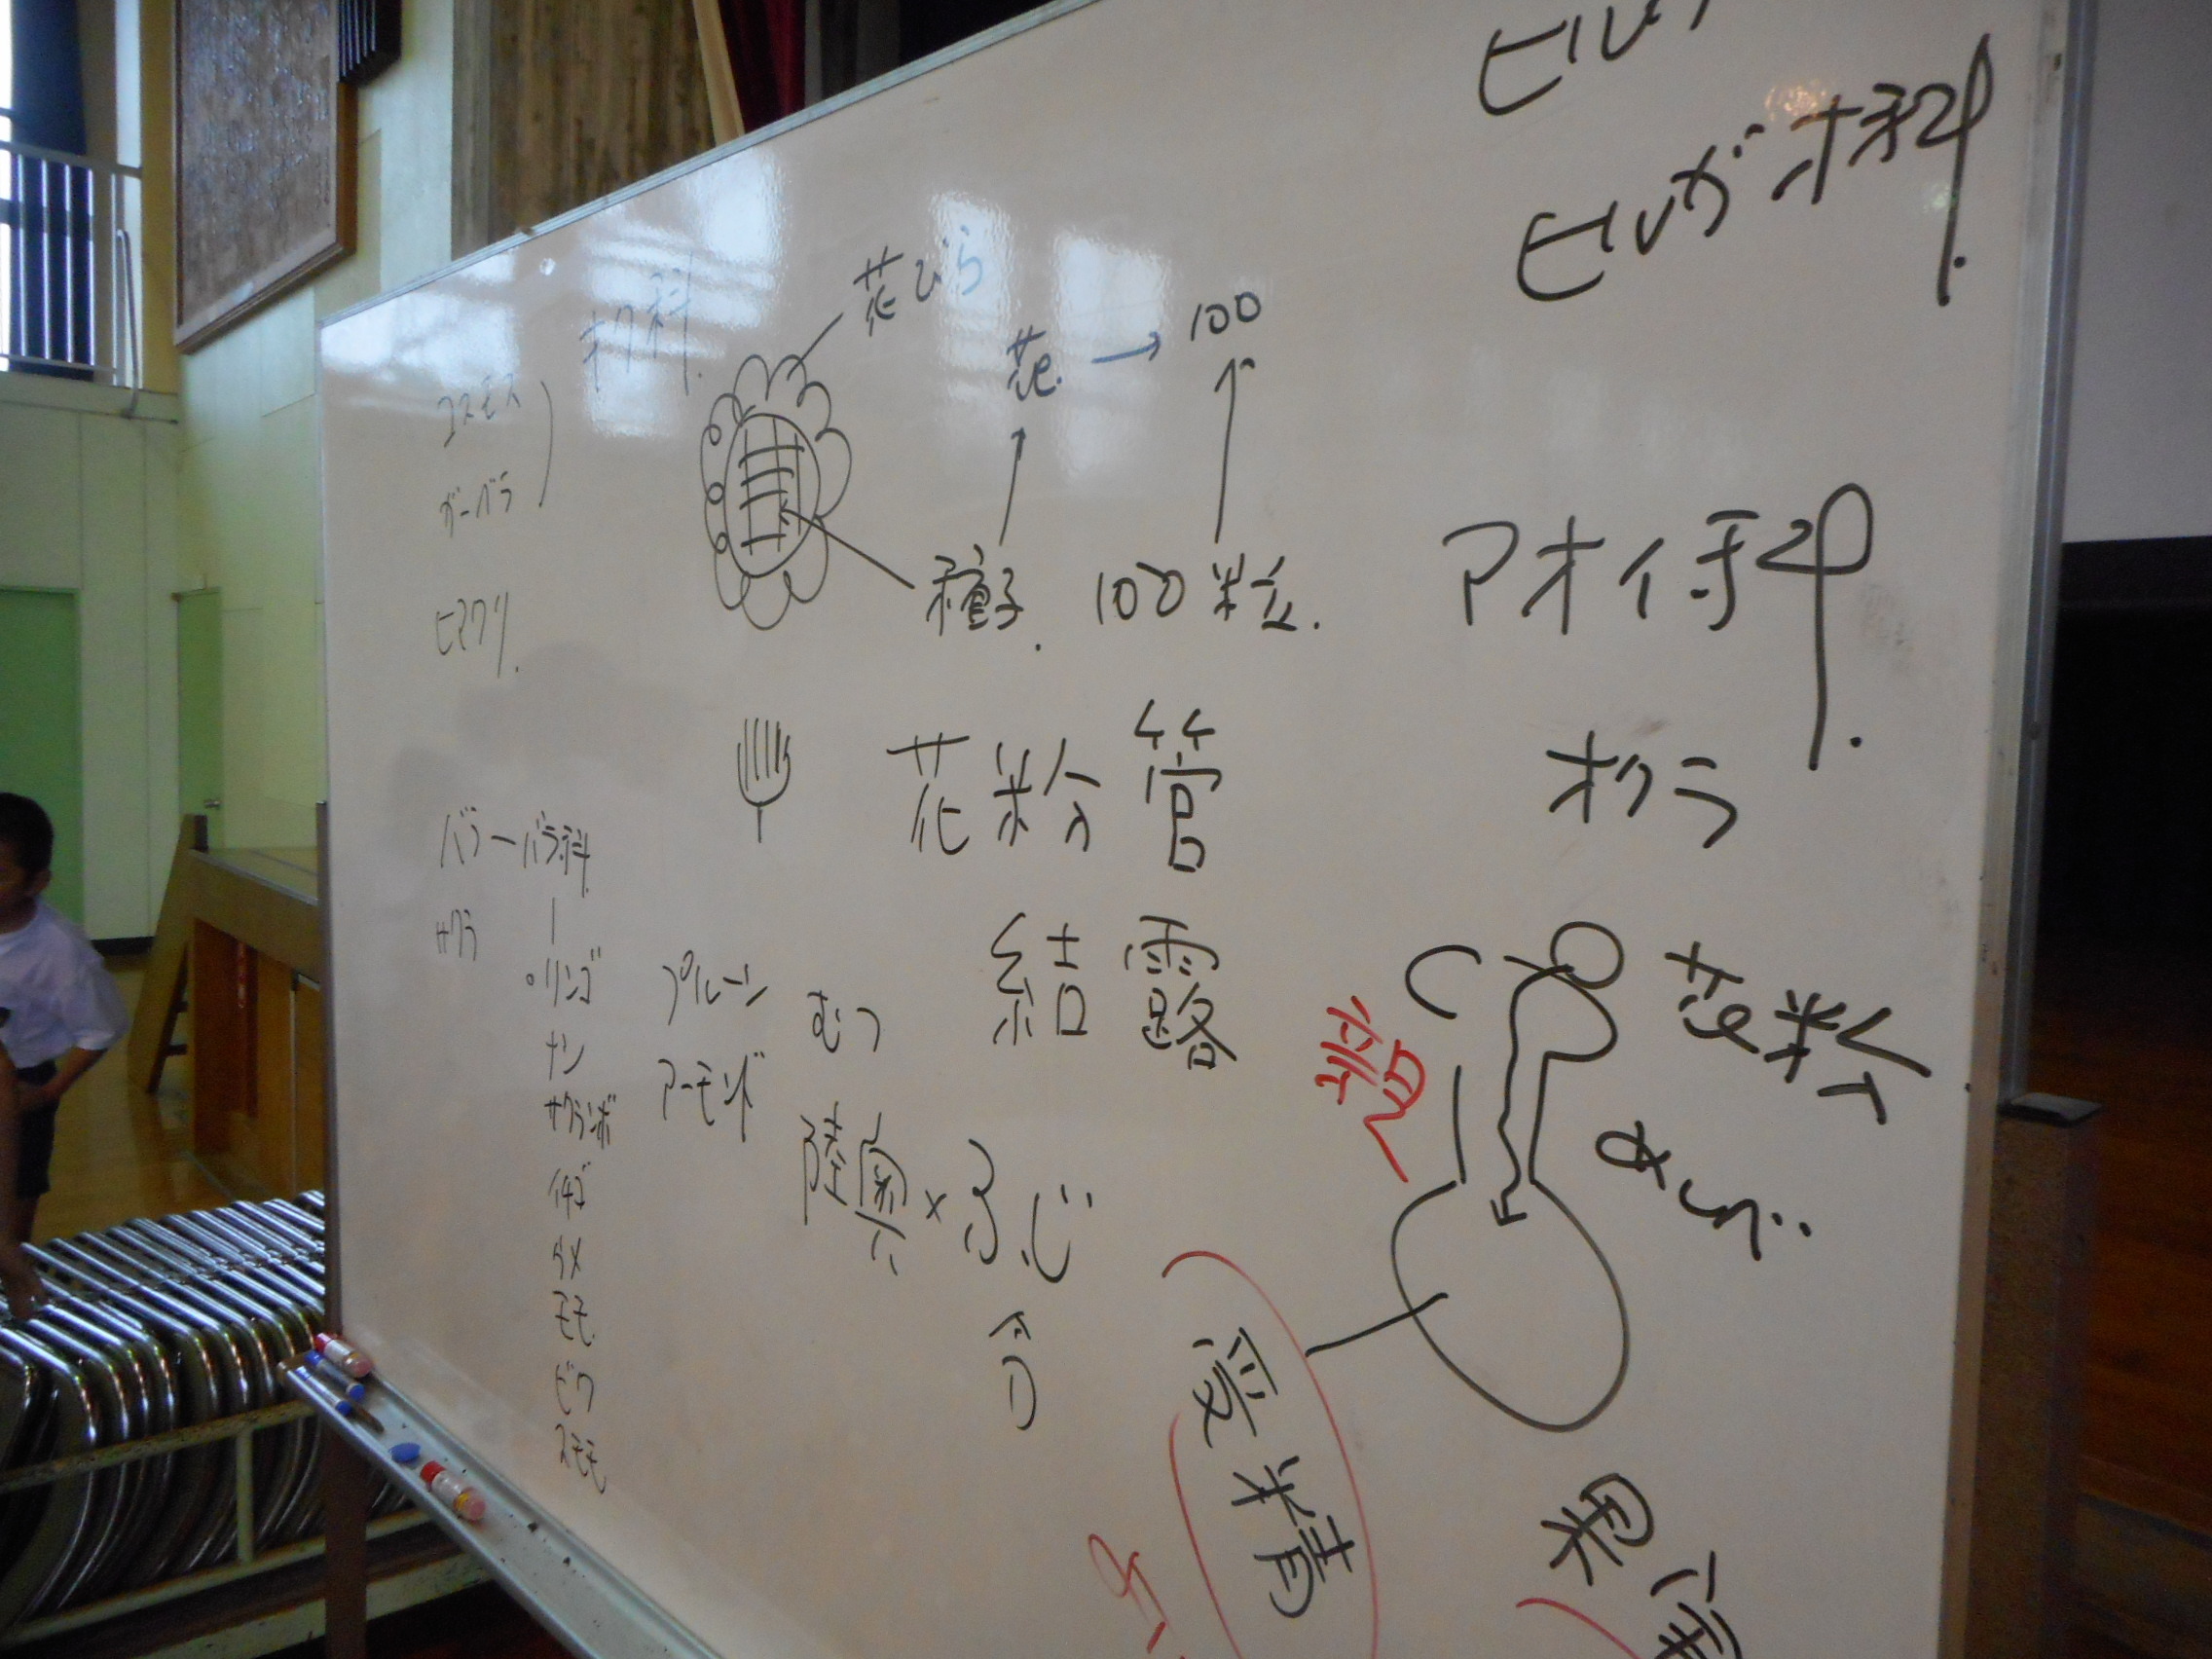 ヒルガオ科
キク科
花びら
コスモス
ガーベラ
ヒマワリ
花 → 100
種子 100粒
アオイ科
オクラ
花粉管
結露
バラ ー バラ科
サクラ
リンゴ
ナシ
サクランボ
イチゴ
ウメ
モモ
ビワ
スモモ
プルーン
アーモンド
むつ
陸奥×ふじ
花粉
めしべ
受精
果実